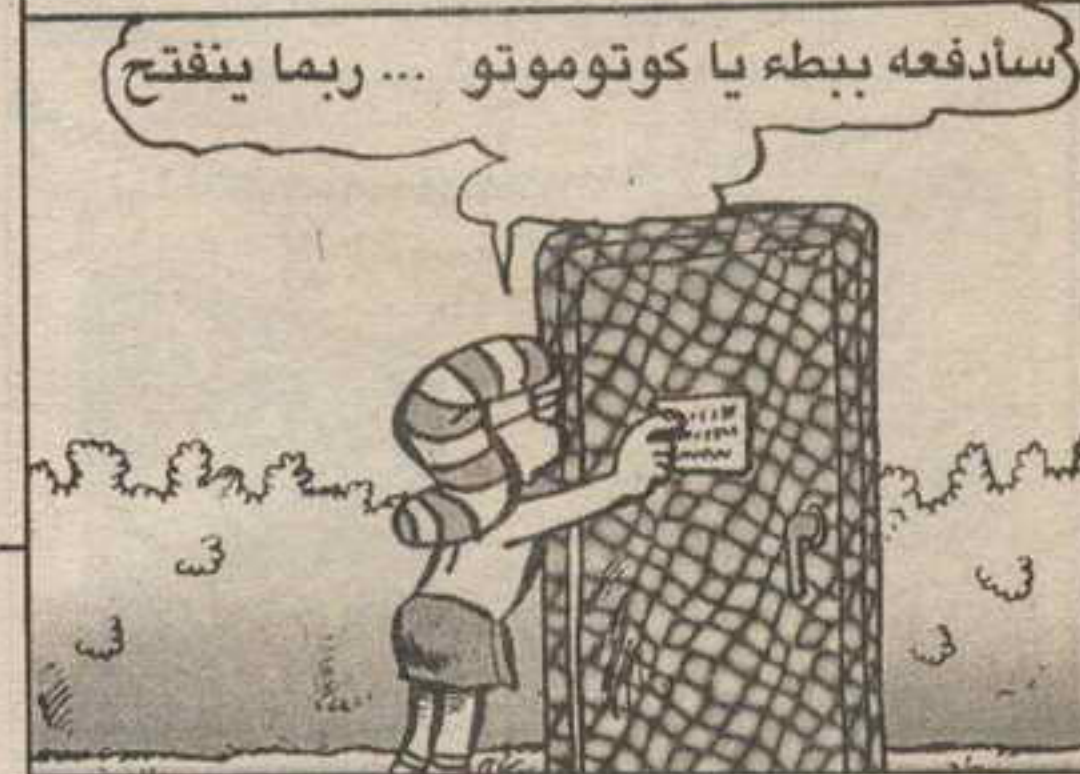 سأدفعه ببطء يا كوتوموتو ... ربما ينفتح